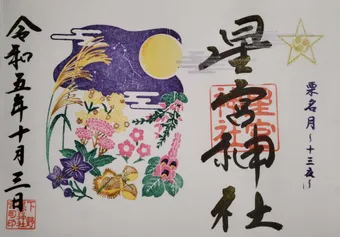 栗名月~十三夜~
星宮神社
星宮
神社
令和五年十月三日